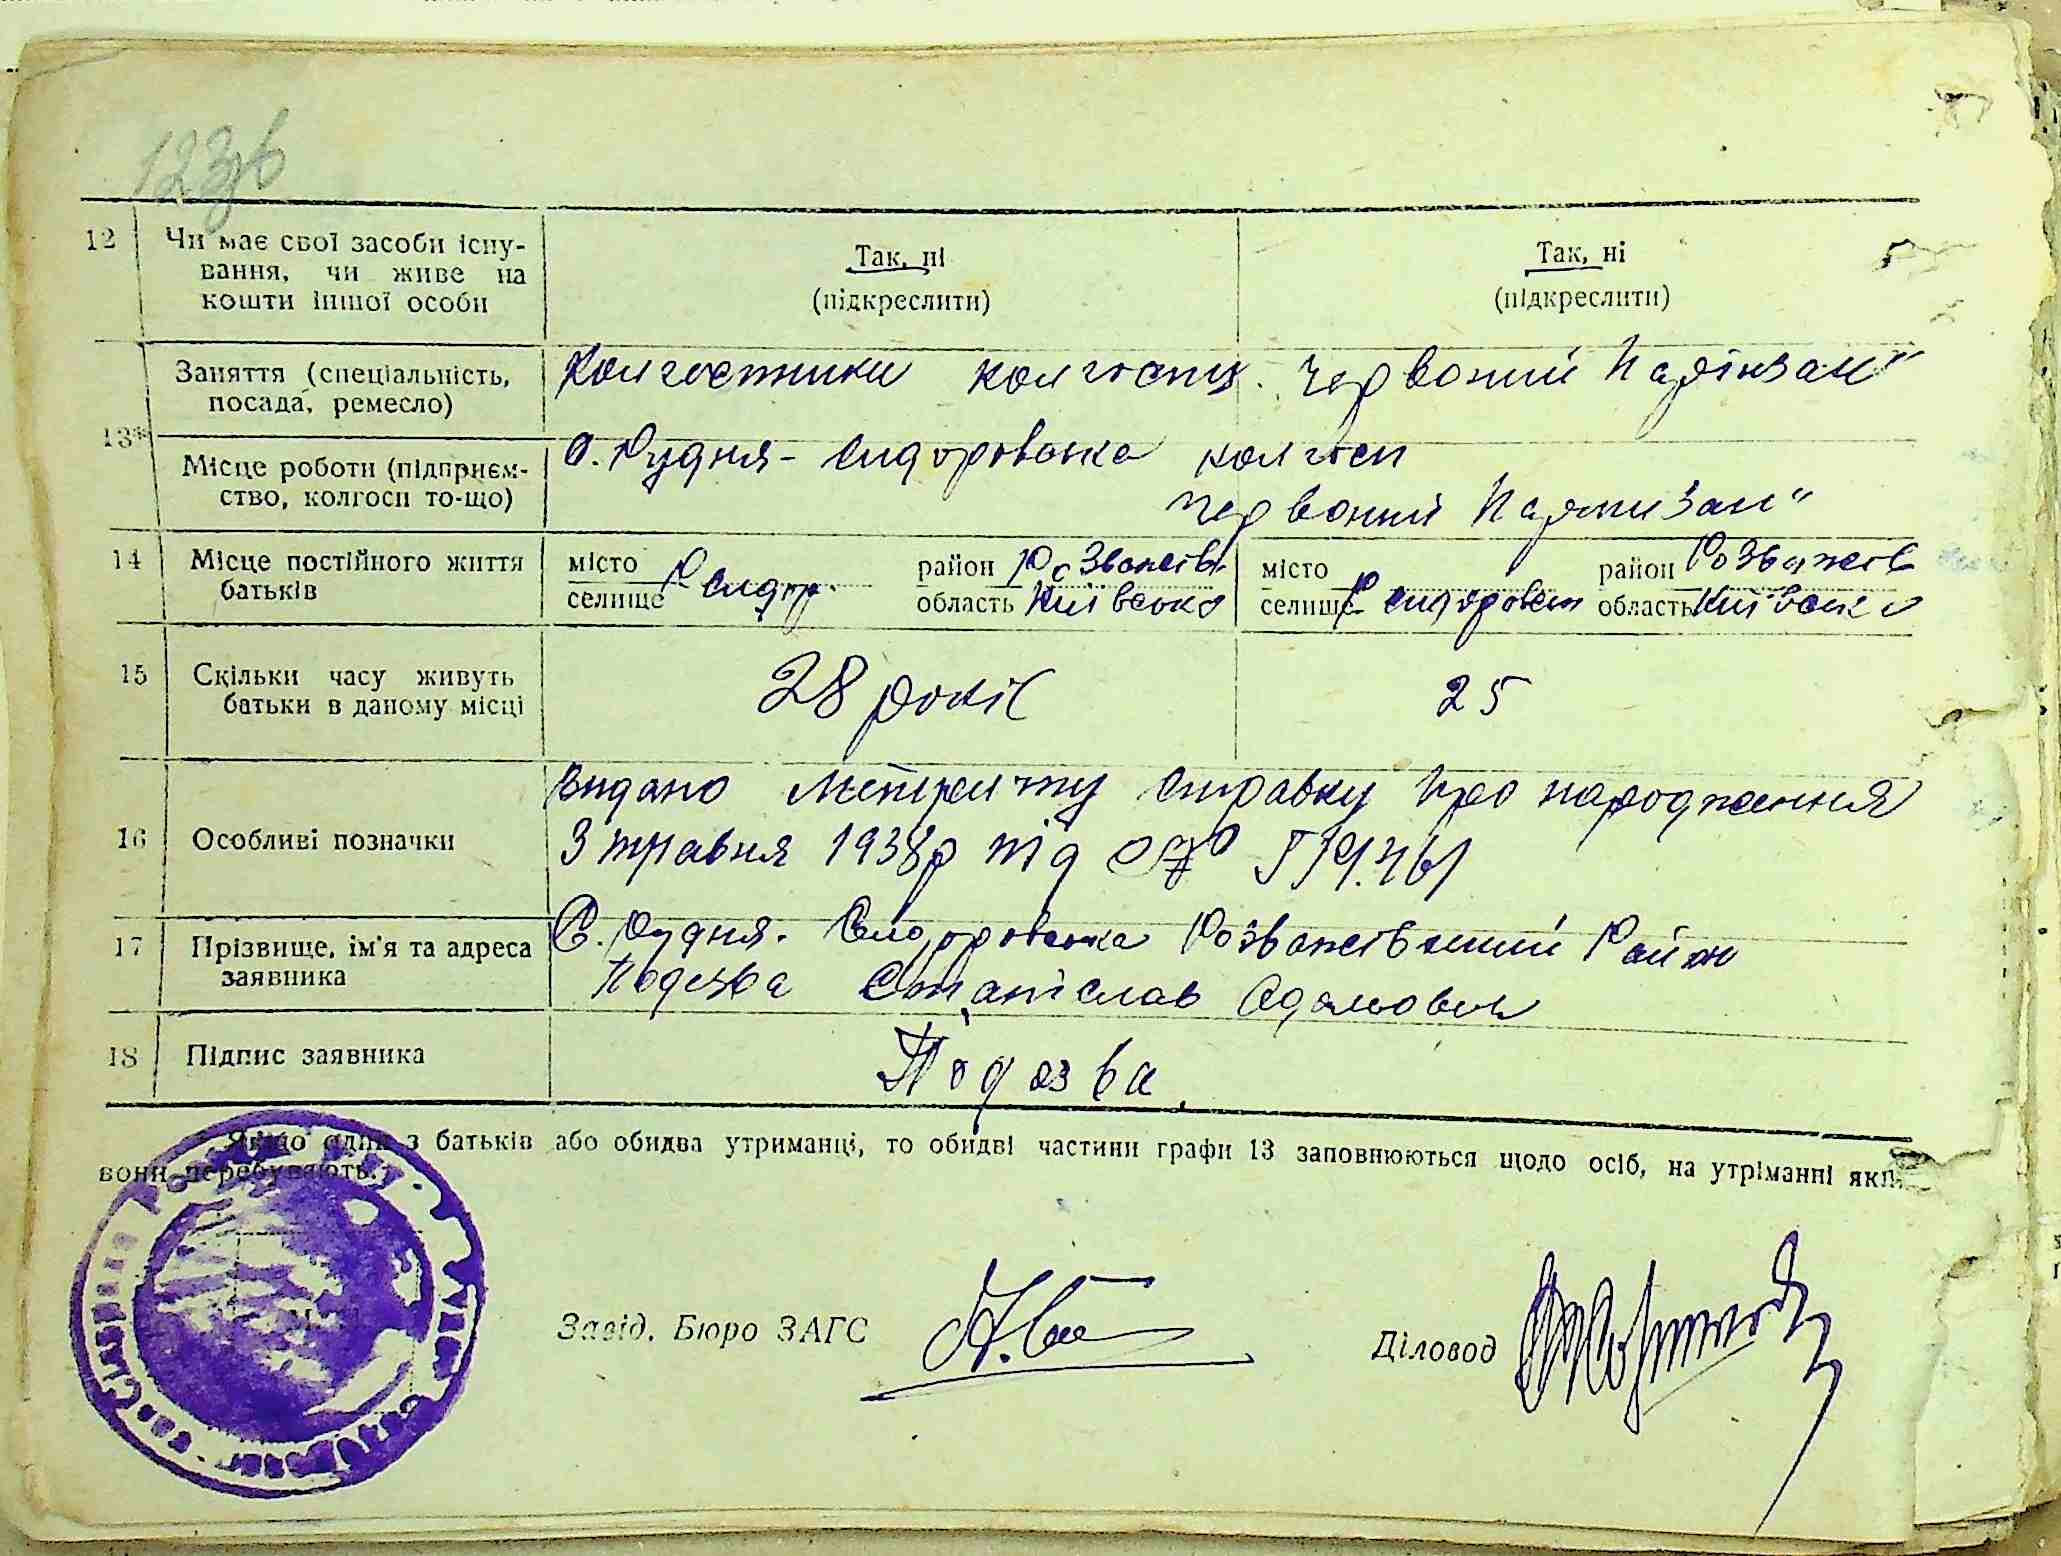 123
12 Чи має свої засоби існу-
вання, чи живе на
кошти іншої особи
Так, ні
(підкреслити)
Так, ні
(підкреслити)
13*
Заняття (спеціальність,
посада, ремесло)
Колгоспники колгоспу Червоний
Місце роботи (підприєм-
ство, колгосп то-що)
с. Рудня-Сидоровська колгосп
Червоний Партизан"
14 Місце постійного життя
батьків
місто
селище Р Сидор.
район Розважів.
область Київська
місто
селище Р Сидоровськ
район Розважів
область Київська
15 Скільки часу живуть
батьки в даному місці
28 років
25
16 Особливі позначки
Видано метричну справку про народження
3 травня 1938р під
17 Прізвище, ім'я та адреса
заявника
С. Рудня. Сидоровська Розважівський Район
Подезва Станіслав Адамович
18 Підпис заявника
Подезва
* Якщо один з батьків або обидва утриманці, то обидві частини графи 13 заповнюються щодо осіб, на утріманні яких
вони перебувають.
Завід. Бюро ЗАГС
Діловод